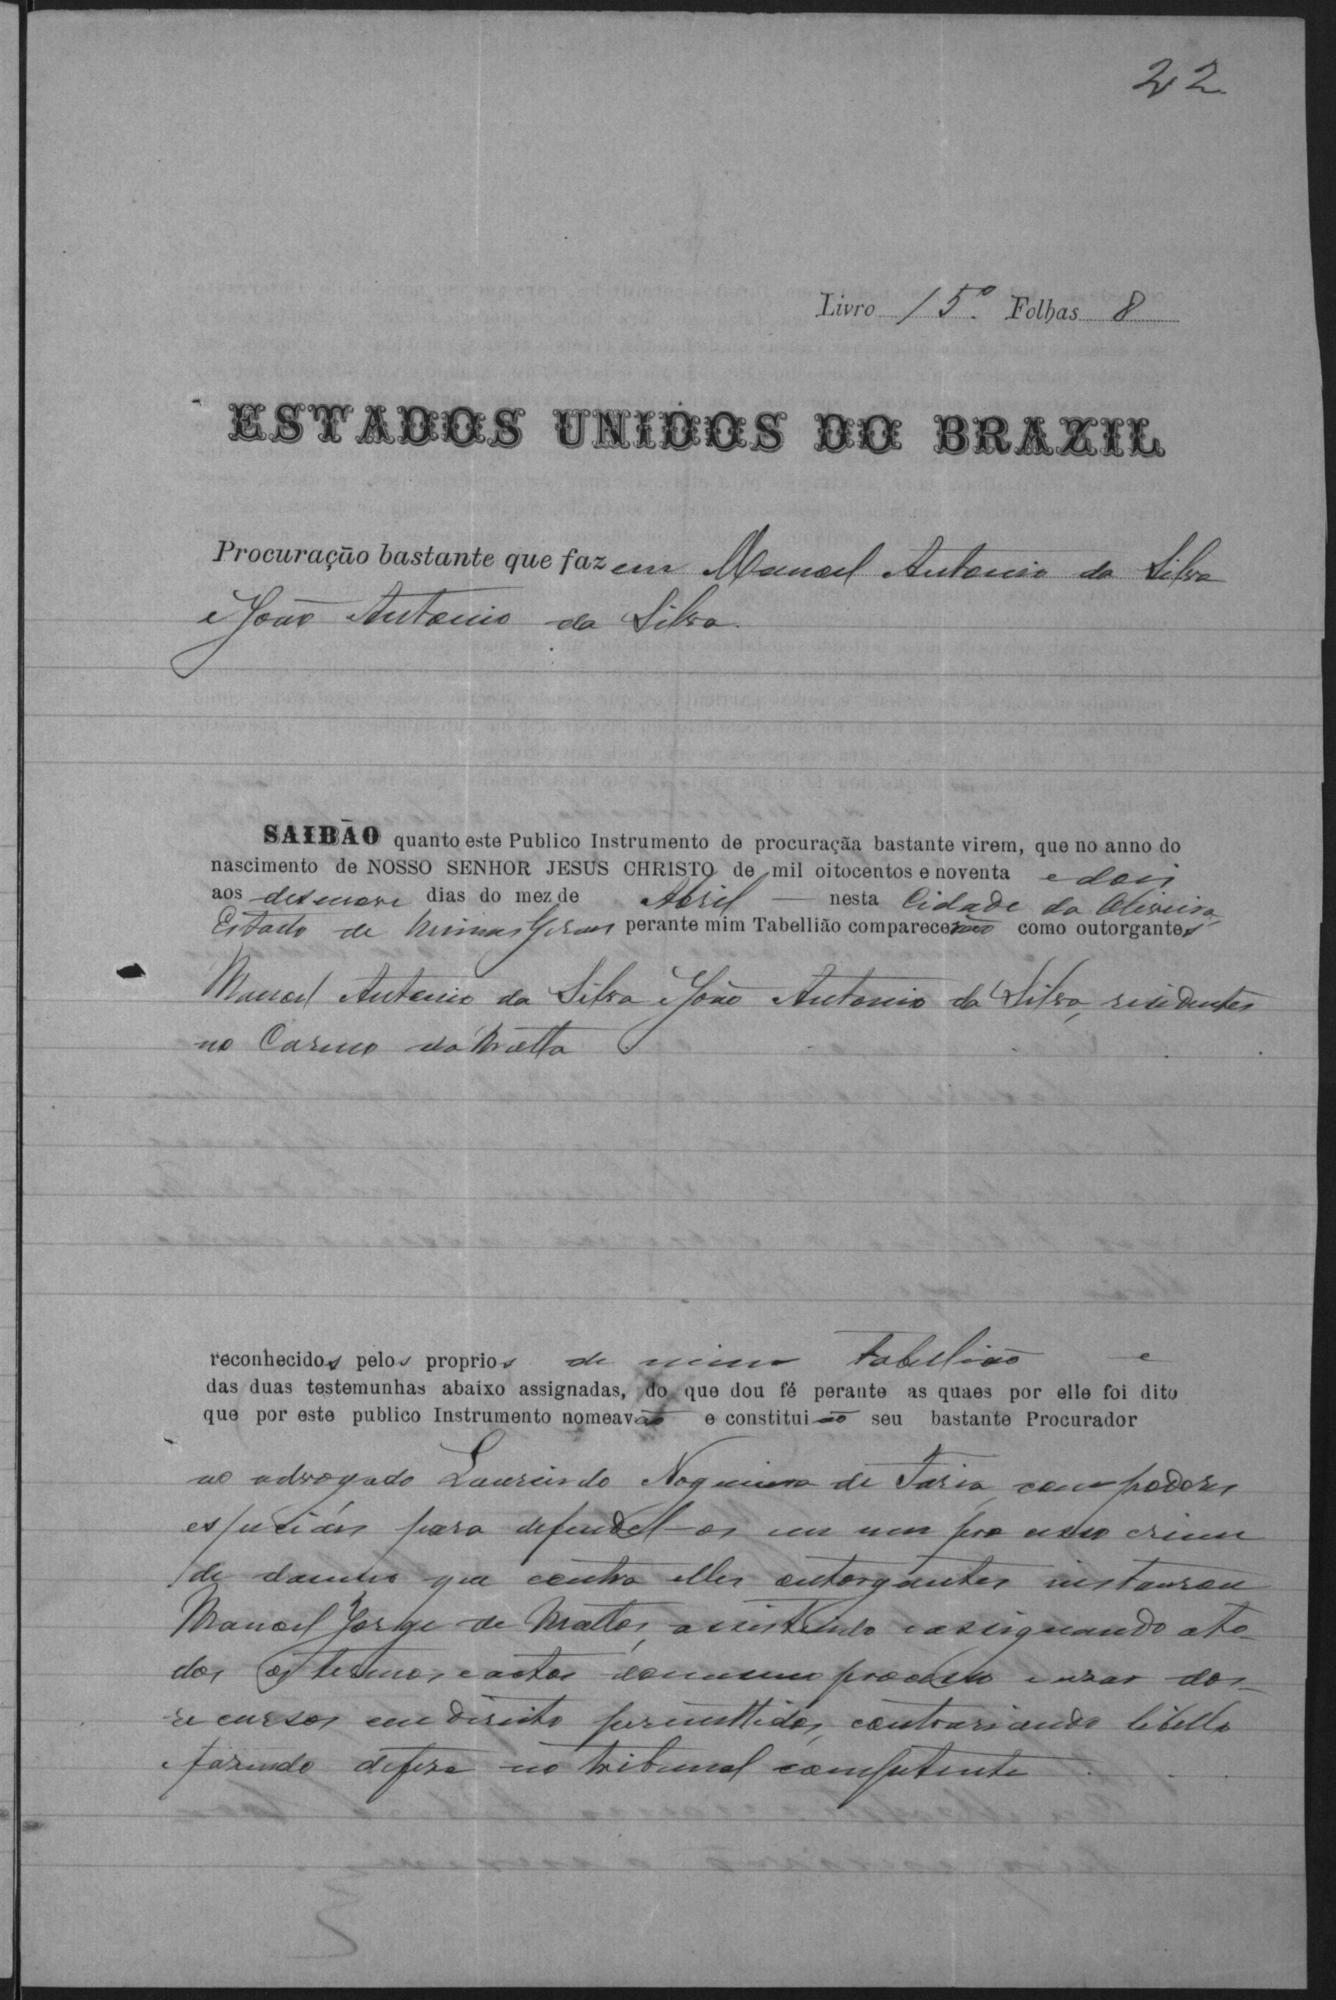 22
Livro 15º. Folhas 8
ESTADOS UNIDOS DO BRAZIL
Procuração bastante que fazem Manoel Antonio da Silva
e João Antonio da Silva.
SAIBÃO quanto este Publico Instrumento de procuraçãa bastante virem, que no anno do
nascimento de NOSSO SENHOR JESUS CHRISTO de mil oitocentos e noventa e dois
aos desenove dias do mez de Abril — nesta Cidade da Oliveira,
Estado de Minas Geraes perante mim Tabellião comparecerão como outorgantes
Manoel Antonio da Silva e João Antonio da Silva, residentes
no Carmo da Matta
reconhecidos pelos proprios de mim Tabellião e
das duas testemunhas abaixo assignadas, do que dou fé perante as quaes por elle foi dito
que por este publico Instrumento nomeavão e constituião seu bastante Procurador
ao advogado Laurindo Nogueira de Faria, com poderes
especiáes para defendel-os em um processo crime
de damno que contra elles outorgantes instaurou
Manoel Jorge de Mattos, assistindo e assignando a to-
dos os termos e actos do mesmo processo e usar dos
recursos em direito permittidos, contrariando libello
e fazendo defeza no tribunal competente